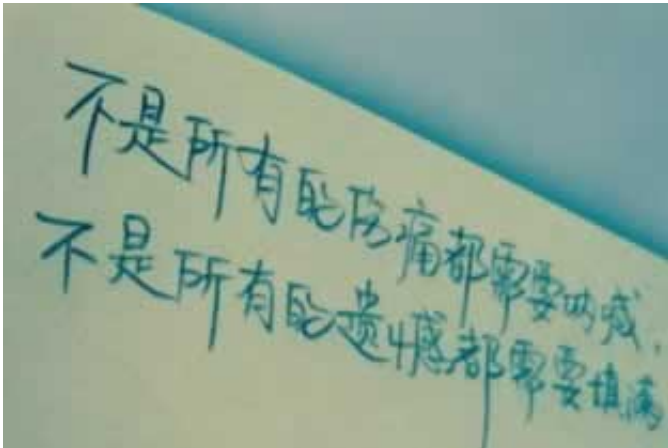 不是所有的伤痛都需要呐喊.
不是所有的遗憾都需要填满